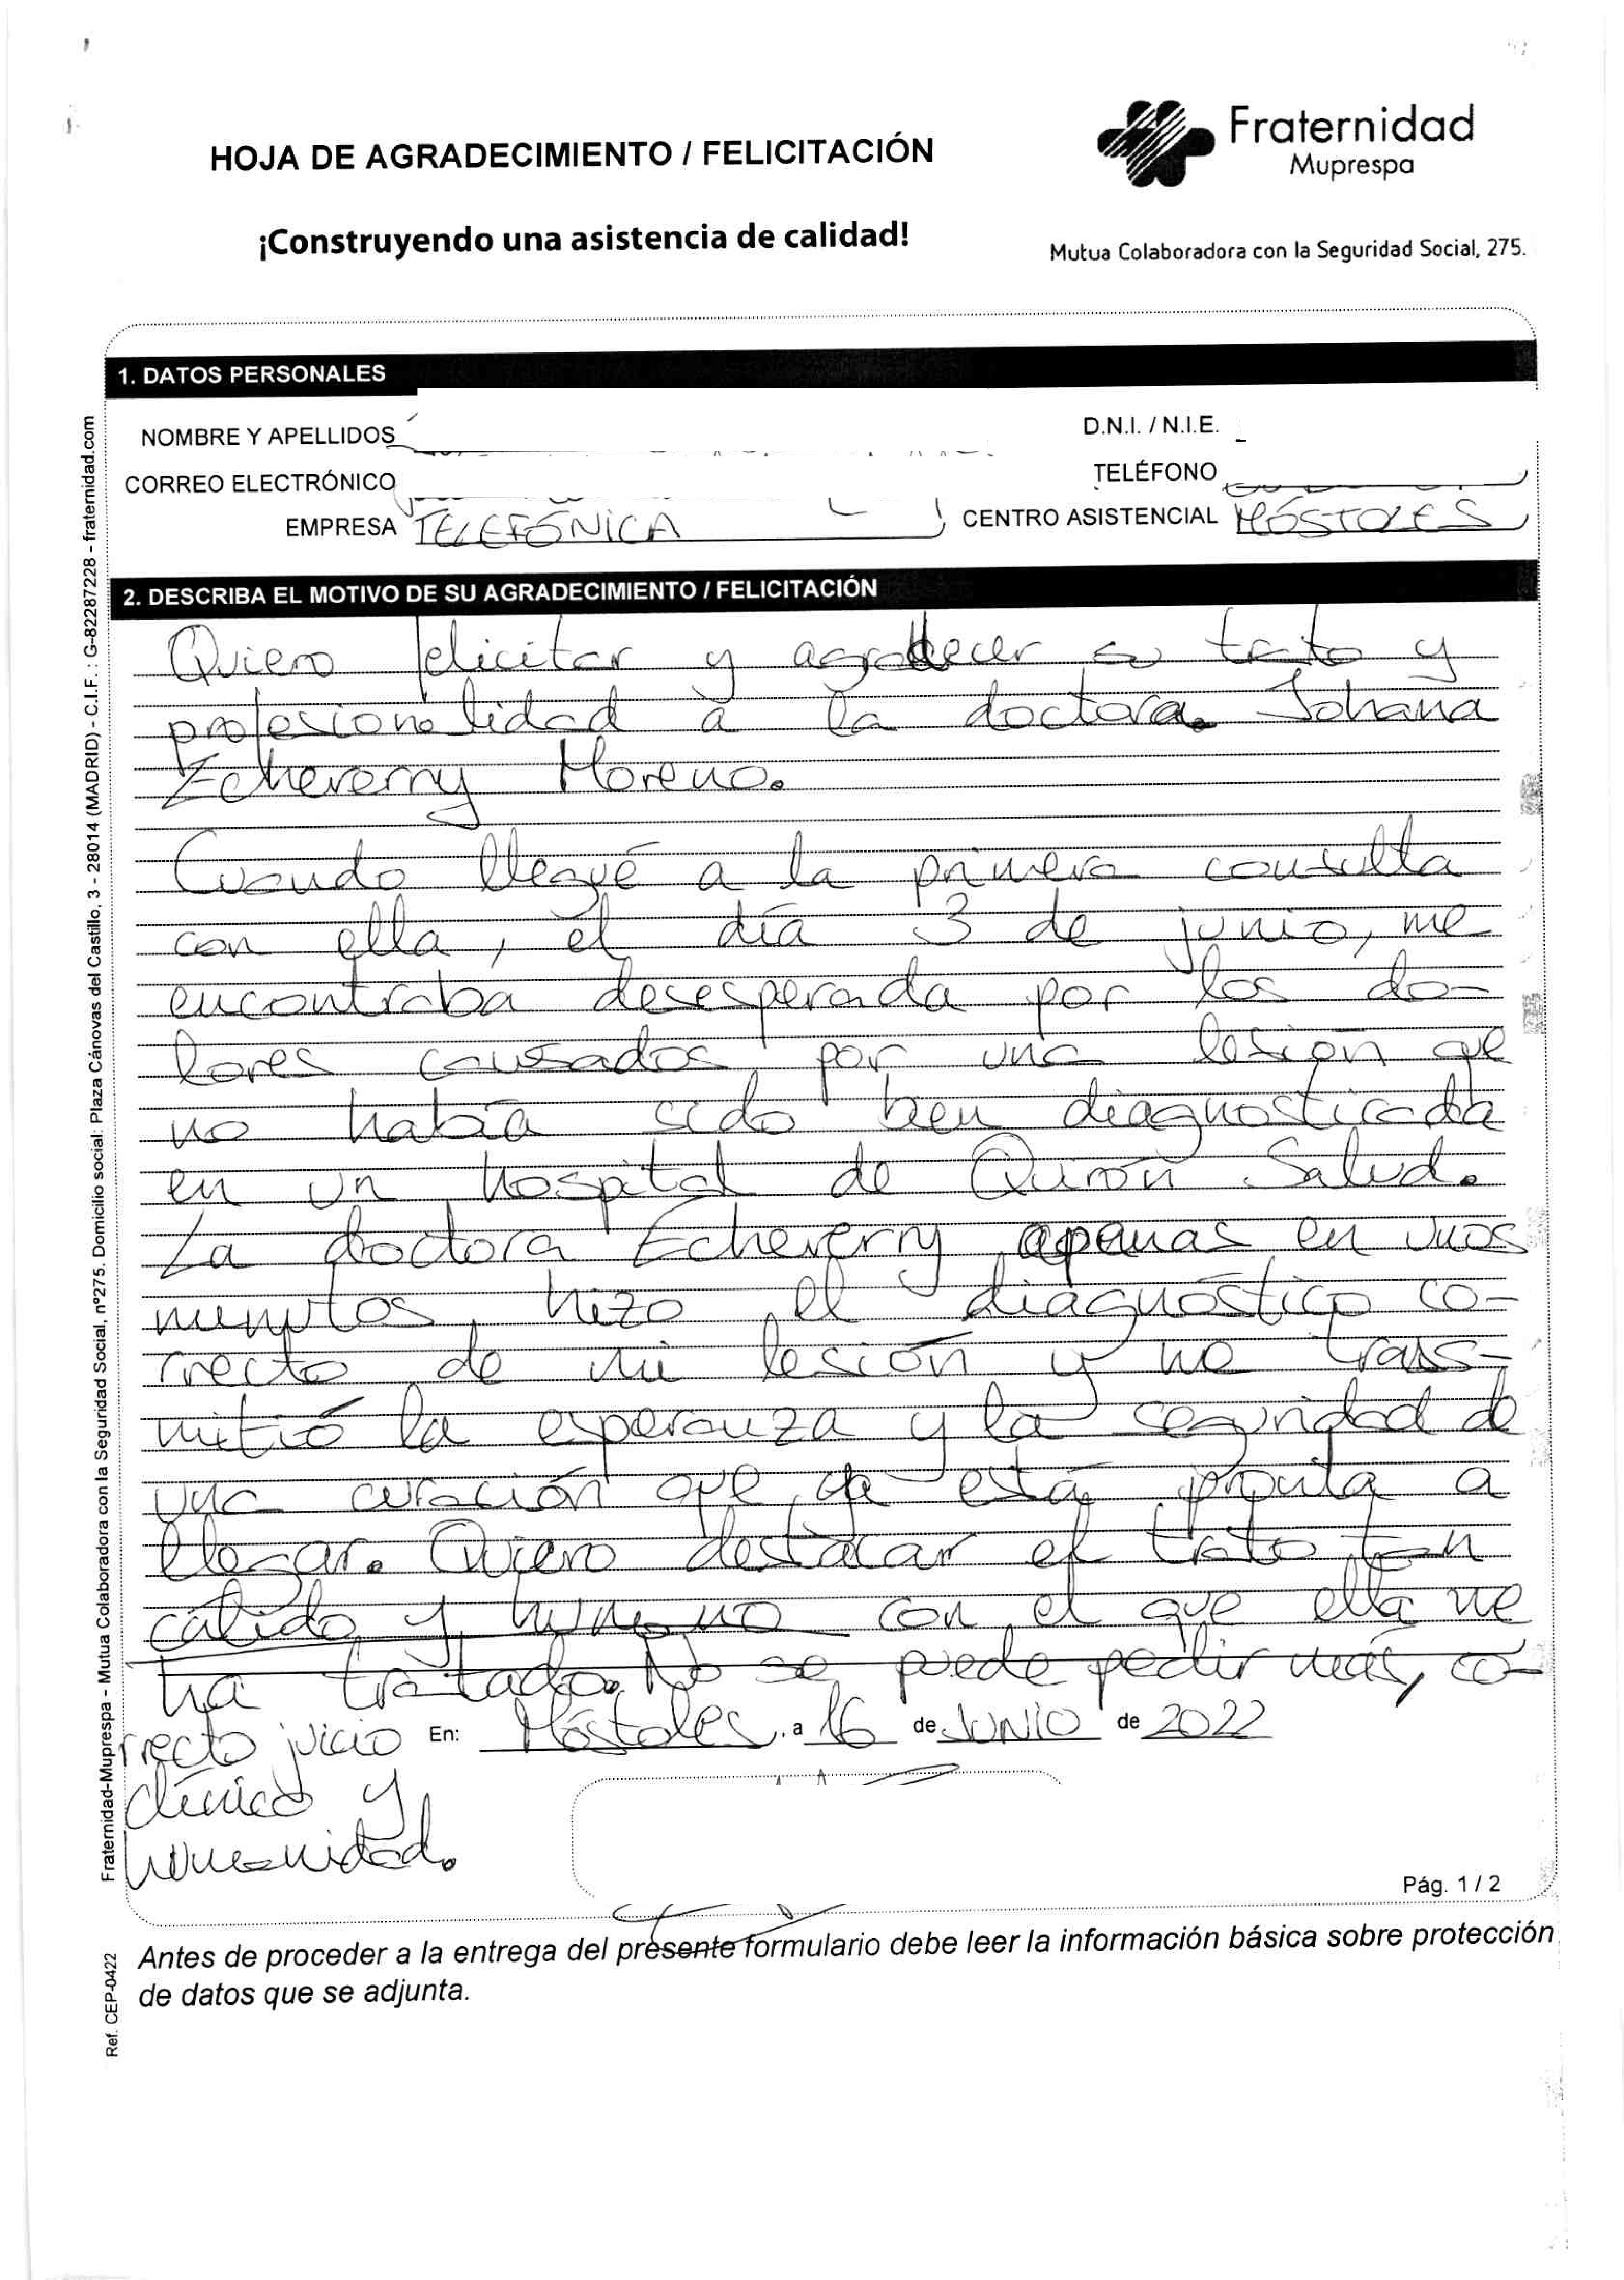 HOJA DE AGRADECIMIENTO / FELICITACIÓN
¡Construyendo una asistencia de calidad!
Fraternidad
Muprespa
Mutua Colaboradora con la Seguridad Social, 275.
1. DATOS PERSONALES
NOMBRE Y APELLIDOS
D.N.I. / N.I.E.
CORREO ELECTRÓNICO
TELÉFONO
EMPRESA TELEFÓNICA
CENTRO ASISTENCIAL MÓSTOLES
2. DESCRIBA EL MOTIVO DE SU AGRADECIMIENTO / FELICITACIÓN
Quiero felicitar y agradecer su trato y
profesionalidad a la doctora Johana
Echeverry Moreno.
Cuando llegué a la primera consulta
con ella, el día 3 de junio, me
encontraba desesperada por los do-
lores causados por una lesión que
no había sido bien diagnosticada
en un hospital de Quirón Salud.
La doctora Echeverry apenas en unos
minutos hizo el diagnóstico co-
rrecto de mi lesión y me trans-
mitió la esperanza y la seguridad de
una curación que ya está pronta a
llegar. Quiero destacar el trato tan
cálido y humano con el que ella me
ha tratado. No se puede pedir más, co-
rrecto juicio
clínico y
humanidad.
En: Móstoles, a 16 de JUNIO de 2022
Pág. 1 / 2
Antes de proceder a la entrega del presente formulario debe leer la información básica sobre protección
de datos que se adjunta.
Fraternidad-Muprespa - Mutua Colaboradora con la Seguridad Social, nº275. Domicilio social: Plaza Cánovas del Castillo, 3 - 28014 (MADRID) - C.I.F. : G-82287228 - fraternidad.com
Ref. CEP-0422